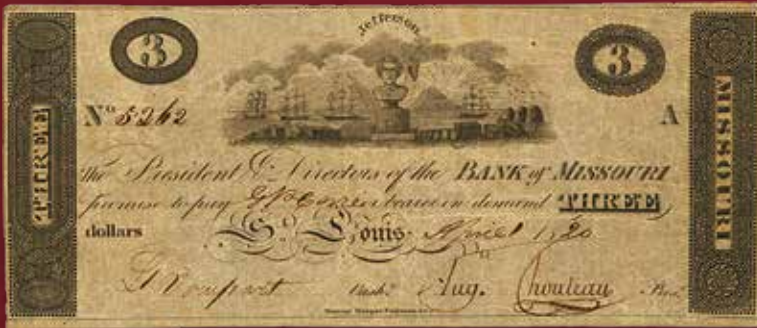 Jefferson
3 3
No 5262 A
THREE
MISSOURI
The President & Directors of the BANK of MISSOURI
promise to pay or bearer on demand THREE
dollars St. Louis April 1820
Cashr Aug. Chouteau Prest